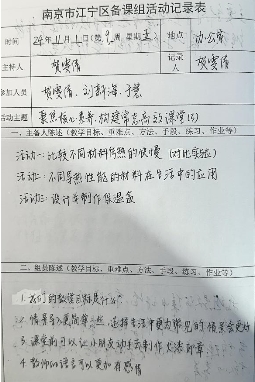 南京市江宁区备课组活动记录表
时间 24年11月1日(第9周 星期五) 地点 办公室
主持人 贺雲倩 记录人 贺雲倩
参加人员 贺雲倩、刘
活动主题 聚焦核心素养,构建常态高效课堂(5)
一、主备人陈述(教学目标、重难点、方法、手段、练习、作业等)
活动一:比较不同材料导热的快慢(对比实验)
活动二:不同导热性能的材料在生活中的应用
活动三:设计并制作保温盒
二、组员陈述(教学目标、重难点、方法、手段、练习、作业等)
1.我们的教学目标是什么?
2.情景导入更简单些,选择生活中更为常见的情景会更好
3.课堂前可以让小朋友动手制作
4.教师的语言可以更加有感情